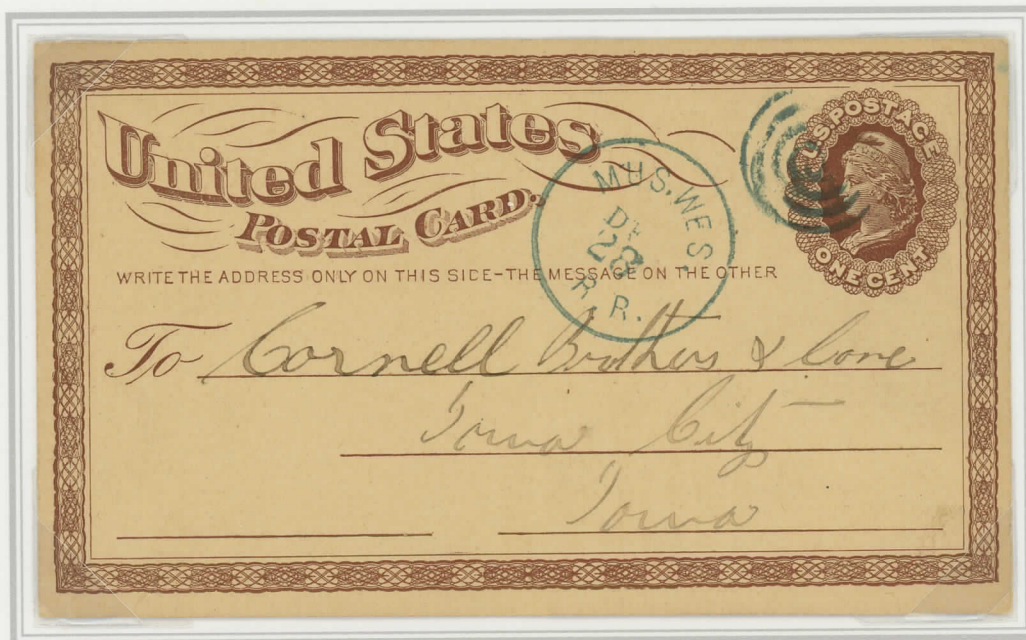 United States
POSTAL CARD.
U.S. POSTAGE
ONE CENT
WRITE THE ADDRESS ONLY ON THIS SIDE-THE MESSAGE ON THE OTHER
MUS. WES
28
R.R.
To Cornell Brothers &
Iowa City
Iowa